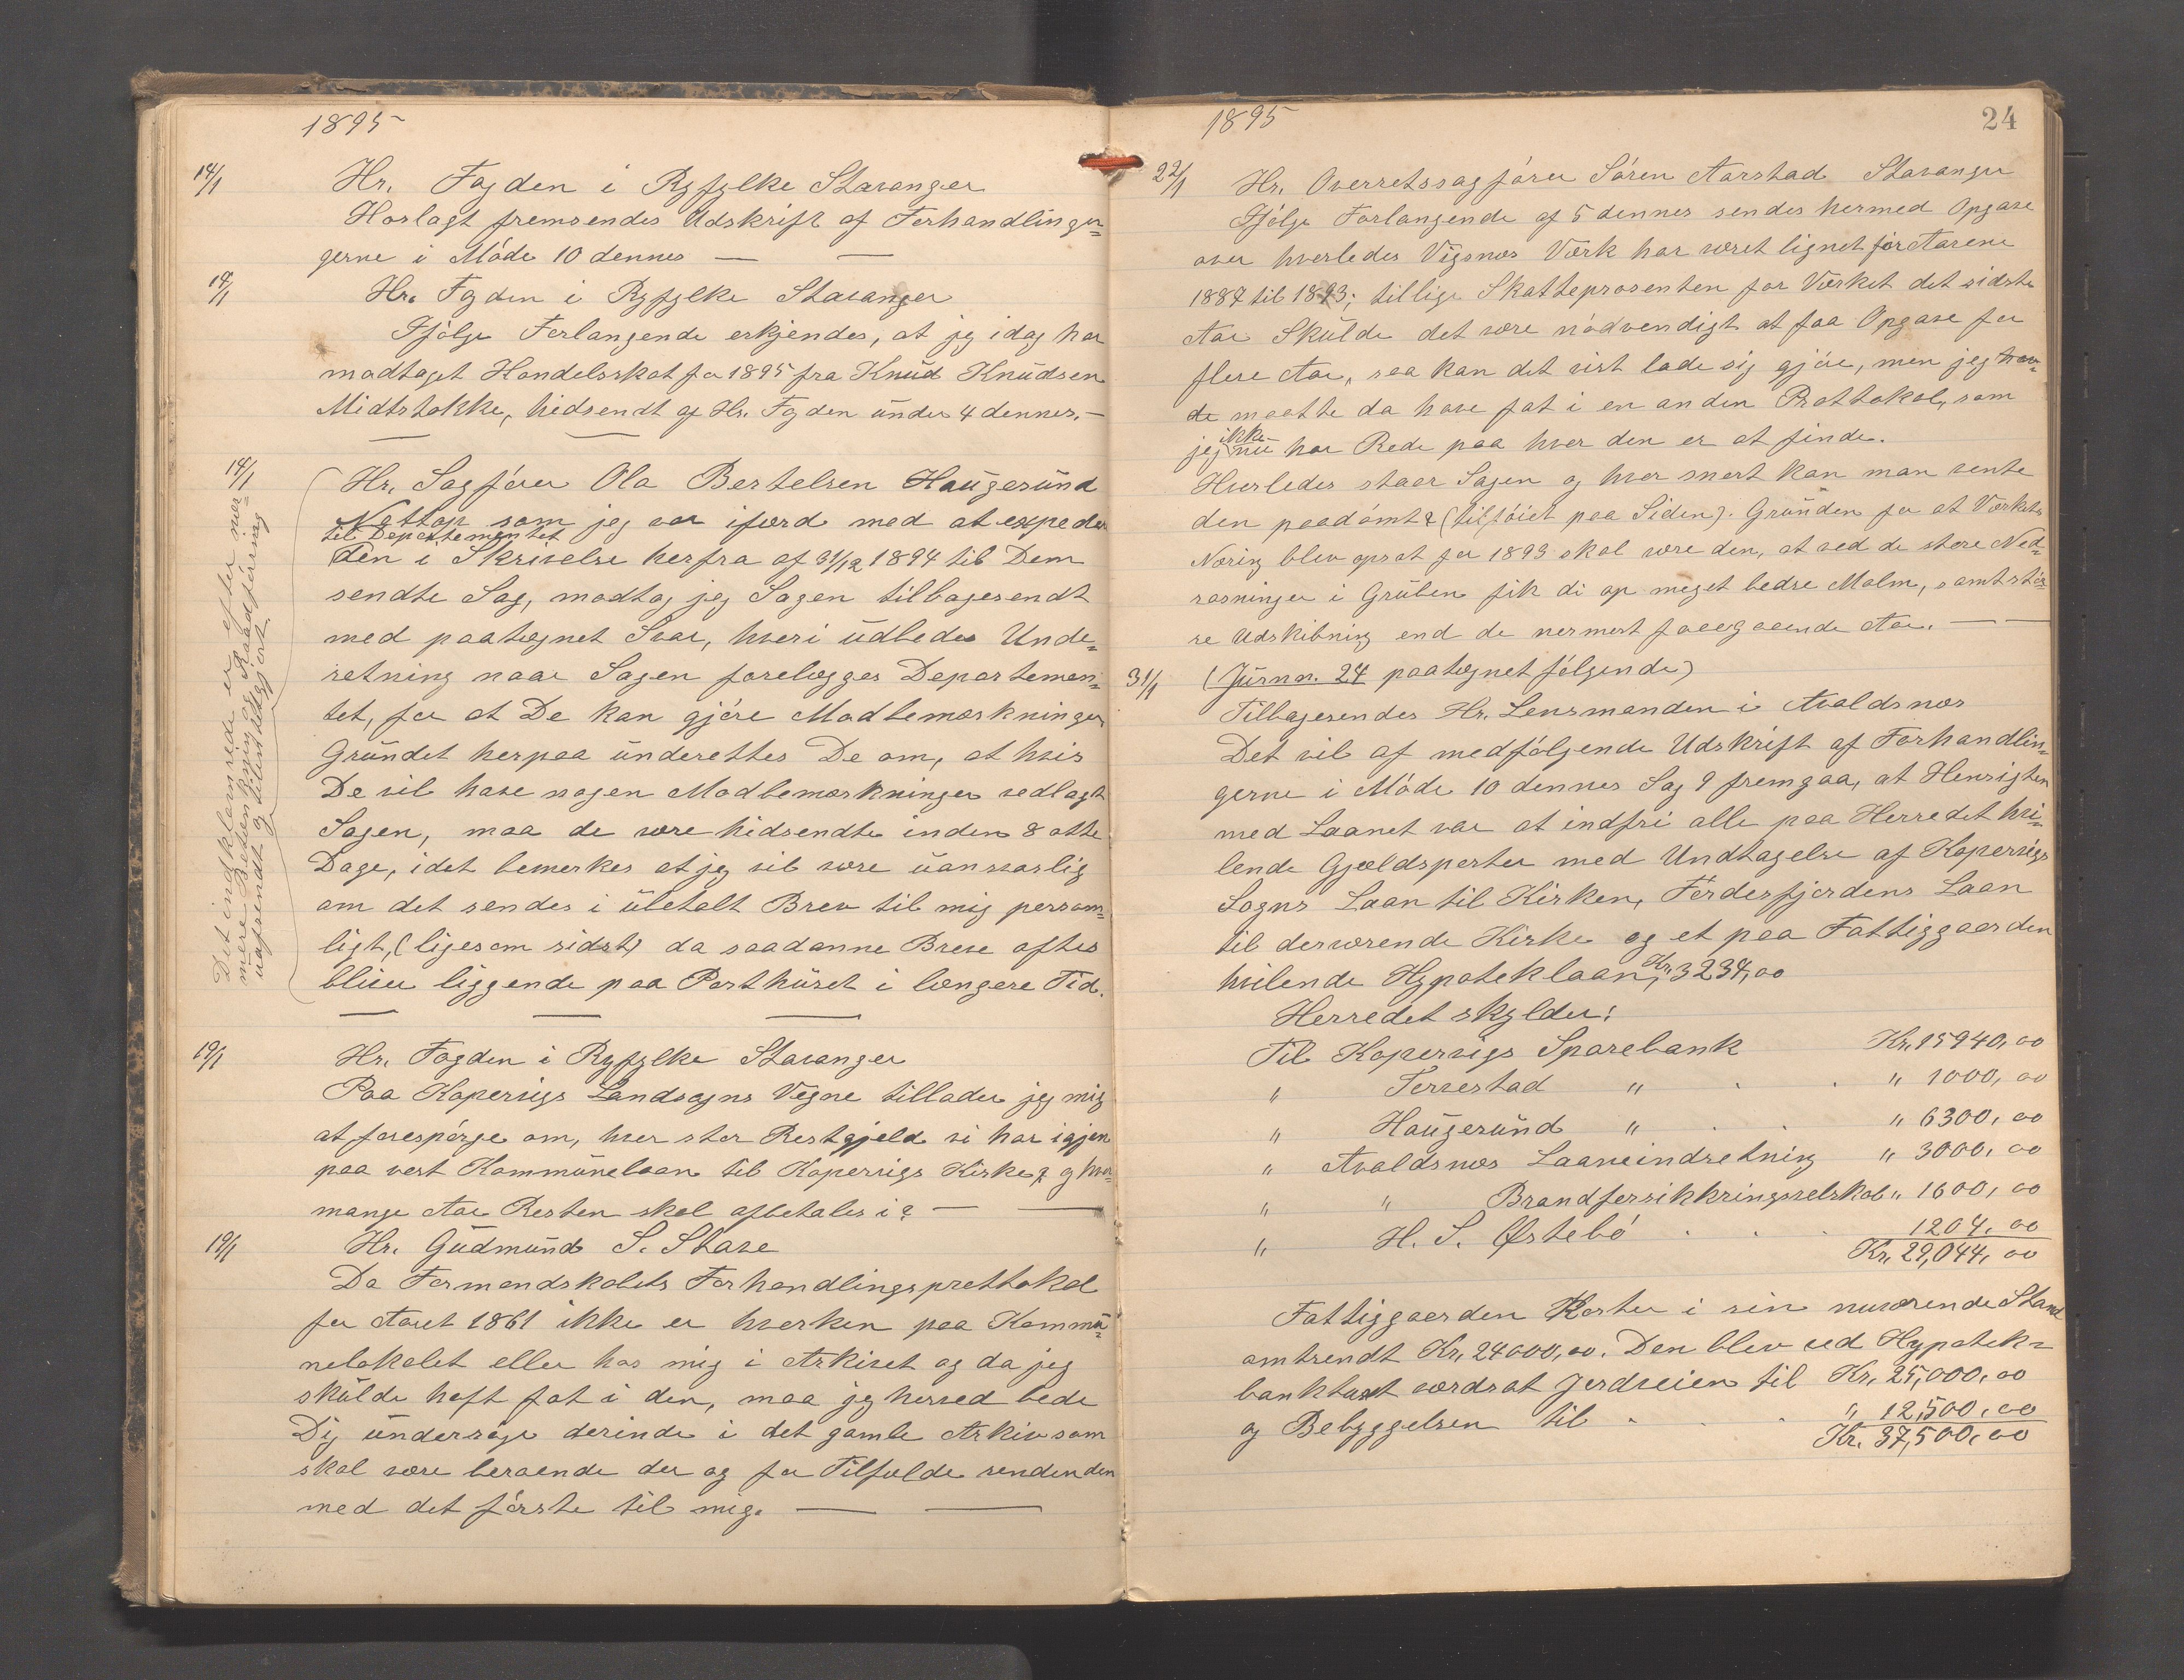 1895
14/1 Hr. Fogden i Ryfylke Stavanger
Hoslagt fremsendes Udskrift af Forhandlingen=
gerne i Möde 10 dennes —
14/1 Hr. Fogden i Ryfylke Stavanger
Ifölge Forlangende erkjendes, at jeg idag har
modtaget Handelsskat for 1895 fra Knud Knudsen
Midtstokke, hidsendt af Hr. Fogden under 4 dennes. —
14/1 Hr. Sagförer Ola Bertelsen Haugesund
Nettop som jeg var iferd med at expedere
til Departementet
den i Skrivelse herfra af 31/12 1894 til Dem
sendte Sag, modtog jeg Sagen tilbagesendt
med paategnet Svar, hvori udbedes Unde=
retning naar Sagen forelægges Departemen=
tet, for at De kan gjöre Modbemærkninger
Grundet herpaa underettes De om, at hvis
De vil have nogen Modbemærkninger vedlagt
Sagen, maa de være hidsendte inden 8 otte
Dage, idet bemerkes at jeg vil være uansvarlig
om det sendes i ubetalt Brev til mig person=
ligt, (ligesom sidst) da saadanne Breve oftes
bliver liggende paa Posthuset i længere Tid.
Det indklamrede er efter nær=
mere Betænkning og Raadföring
uafsendt og tilintetgjort
19/1 Hr. Fogden i Ryfylke Stavanger
Paa Kopervigs Landsogns Vegne tillader jeg mig
at forespörge om, hvor stor Restgjeld vi har igjen
paa vort Kommunelaan til Kopervigs Kirke, og hvor
mange Aar Resten skal afbetales i? —
19/1 Hr. Gudmund S. Stave
Da Formandskabets Forhandlingsprottokol
for Aaret 1861 ikke er hverken paa Kommu=
nelokalet eller hos mig i Arkivet og da jeg
skulde havt fat i den, maa jeg herved bede
Dig undersöge derinde i det gamle Arkiv som
skal være beroende der og for Tilfælde senden den
med det förste til mig. —
1895
24
22/1 Hr. Overretssagförer Sören Aarstad Stavanger
Ifölge Forlangende af 5 dennes sendes hermed Opgave
over hvorledes Vigsnes Værk har været lignet for Aarene
1887 til 1893; tillige Skatteprosenten for Værket det sidste
Aar Skulde det være nödvendigt at faa Opgave for
flere Aar, saa kan det vist lade sig gjöre, men jeg hav=
de maatte da have fat i en anden Prottokol, som
ikke
jeg nu har Rede paa hvor den er at finde.
Hvorledes staar Sagen og hvor snart kan man vente
den paadömt? (tilföiet paa Siden). Grunden for at Værkets
Næring blev opsat for 1893 skal være den, at ved de store Ned=
rasninger i Gruben fik di op meget bedre Malm, samt stör=
re Udskibning end de nermest foregaaende Aar. —
31/1 (Jurn. n. 24 paategnet fölgende)
Tilbagesendes Hr. Lensmanden i Avaldsnes
Det vil af medfölgende Udskrift af Forhandlin=
gerne i Möde 10 dennes Sag 9 fremgaa, at Hensigten
med Laanet var at indfri alle paa Herredet hvi=
lende Gjældsposter med Undtagelse af Kopervigs
Sogns Laan til Kirken, Fördesfjordens Laan
til derværende Kirke og et paa Fattiggaarden
hvilende Hypoteklaan, Kr. 3234,00
Herredet skylder:
Til Kopervigs Sparebank Kr. 15940,00
" Torvestad " . . " 1000,00
" Haugesund " . . " 6300,00
" Avaldsnes Laaneindretning " 3000,00
" " Brandforsikkringsselskab " 1600,00
" H. S. Østebö . . . 1204,00
Kr. 29,044,00
Fattiggaarden Koster i sin nuværende Stand
omtrendt Kr. 24000,00. Den blev ved Hypotek=
banktaxt værdsat Jordveien til Kr. 25,000,00
og Bebyggelsen til . . . " 12,500,00
Kr. 37,500,00